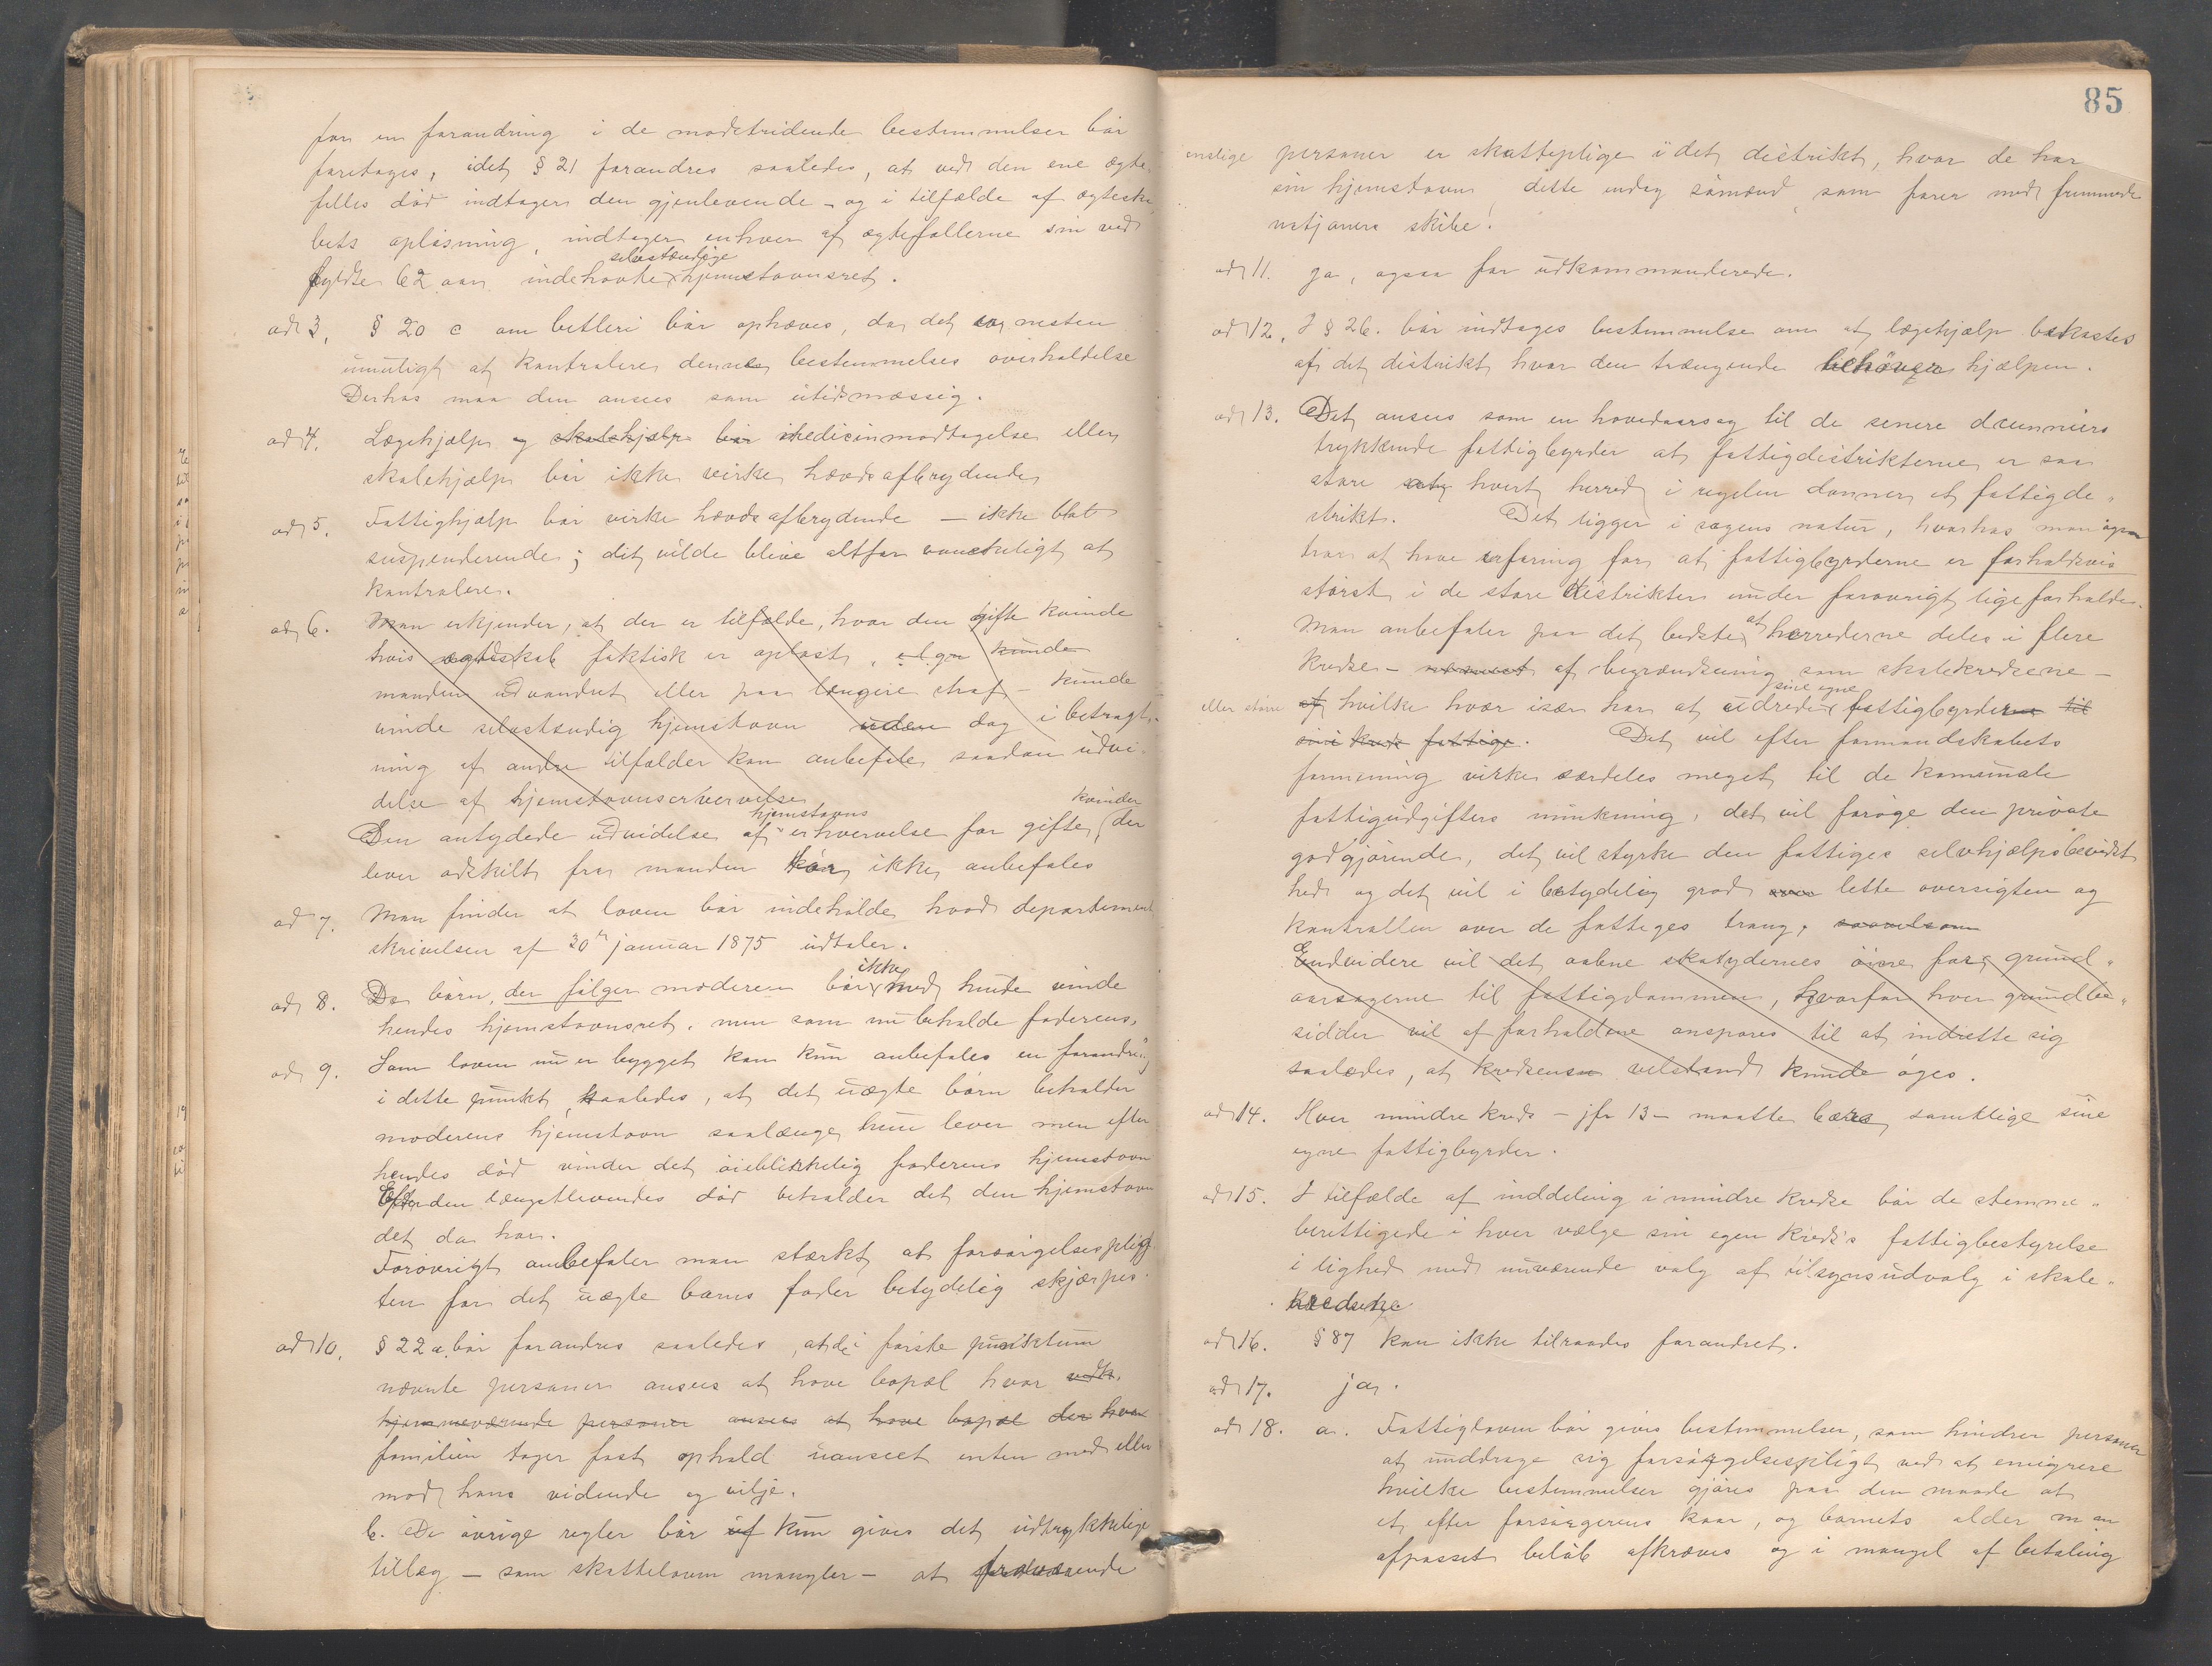 for en forandring i de modstridende bestemmelser bör
foretages, idet § 21 forandres saaledes, at ved den ene ægte-
felles död indtager den gjenlevende – og i tilfælde af ægteska-
bets oplösning, indtager enhver af ægtefællerne sin ved
selvstændige
fyldte 62 aar indehavte hjemstavnsret.
ad 3, § 20 c om betleri bör ophæves, da det er nesten
umuligt at kontrolere dennes bestemmelses overholdelse
Derhos maa den ansees som utidsmæssig.
ad 4. Lægehjælp og skolehjælp bör medicinmodtagelse eller
skolehjælp bör ikke virke hævdsafbrydende
ad 5. Fattighjælp bör virke hævdsafbrydende – ikke blot
suspenderende; dit vilde blive altfor vanskeligt at
kontrolere.
ad 6. Man erkjender, at der er tilfælde, hvor den gifte kvinde
hvis ægteskab faktisk er oplöst, kunde
manden udvandret eller paa længere straf – kunde
vinde selvstændig hjemstavn uden dog i betragt-
ning af andre tilfælder kan anbefale saadan udvi-
delse af hjemstavnserhvervelse
hjemstavns kvinder
Den antydede udvidelse af erhvervelse for gifte, der
lever adskilt fra manden bör ikke anbefales
ad 7. Man finder at loven bör indeholde hvad departement
skrivelsen af 30te januar 1875 udtaler.
ikke
ad 8. De börn, der fölger moderen bör med hende vinde
hendes hjemstavnsret, men som nu beholde faderens,
ad 9. Som loven nu er bygget kan kun anbefales en forandring
i dette punkt, saaledes, at det uægte barn beholder
moderens hjemstavn saalænge hun lever men efter
hendes död vinder det öieblikkelig faderens hjemstavn
Efter den længstlevendes död beholder det den hjemstavn
det da har.
Forövrigt anbefaler man stærkt at forsörgelsesplig-
ten for det uægte barns fader betydelig skjærpes.
ad 10. § 22 a. bör forandres saaledes, at de i förste punktum
nævnte personer ansees at have bopæl hvor
hjemmeværende personer ansees at have bopæl der hvor
familien tager fast ophold uanseet enten med eller
mod hans vidende og vilje.
b. De övrige regler bör kun gives det udtrykkelige
tillæg – som skatteloven mangler – at fraværende
85
enslige personer er skattepligtige i det distrikt, hvor de har
sin hjemstavn, dette endog sömænd, som farer med fremmede
natjoners skibe.
ad 11. ja, ogsaa for udkommanderede.
ad 12. I § 26. bör indtages bestemmelse om at lægehjælp bekostes
af det distrikt hvor den trængende behöver hjælpen.
ad 13. Det ansees som en hovedaarsag til de senere decenniers
trykkende fattigbyrder at fattigdistrikterne er saa
store at hvert herred i regelen danner et fattigdi-
strikt. Det ligger i sagens natur, hvorhos man ogsaa
tror at have erfaring for at fattigbyrderne er forholdsvis
störst i de store distrikter under forövrigt lige forholde.
at
Man anbefaler paa det bedste herrederne deles i flere
kredse – af begrændsning som skolekredsene –
sine egne
eller större af hvilke hver især har at udrede fattigbyrder til
sine fattige. Det vil efter formandskabets
formening virke særdeles meget til de komunale
fattigudgifters minkning, det vil foröge den private
godgjörende, det vil styrke den fattiges selvhjælpsbevidst
hed og det vil i betydelig grad lette oversigten og
kontrollen over de fattiges trang, saavelsom
Endvidere vil det aabne skatydernes öine for grund-
aarsagerne til fattigdommen, hvorfor hver grundbe-
sidder vil af forholdene anspores til at indrette sig
saaledes, at kredsens velstand kunde öges.
ad 14. Hver mindre kreds – jfr 13 – maatte bære samtlige sine
egne fattigbyrder.
ad 15. I tilfælde af inddeling i mindre kredse bör de stemme-
berettigede i hver vælge sin egen kreds's fattigbestyrelse
i lighed med nuværende valg af tilsynsudvalg i skole-
kredsene
ad 16. § 87 kan ikke tilraades forandret.
ad 17. ja.
ad 18. a. Fattigloven bör gives bestemmelser, som hindrer personer
at unddrage sig forsörgelsespligt ved at emigrere
hvilke bestemmelser gjöres paa den maade at
et efter forsörgerens kaar, og barnets alder m m
afpasset belöb afkræves og i mangel af betaling